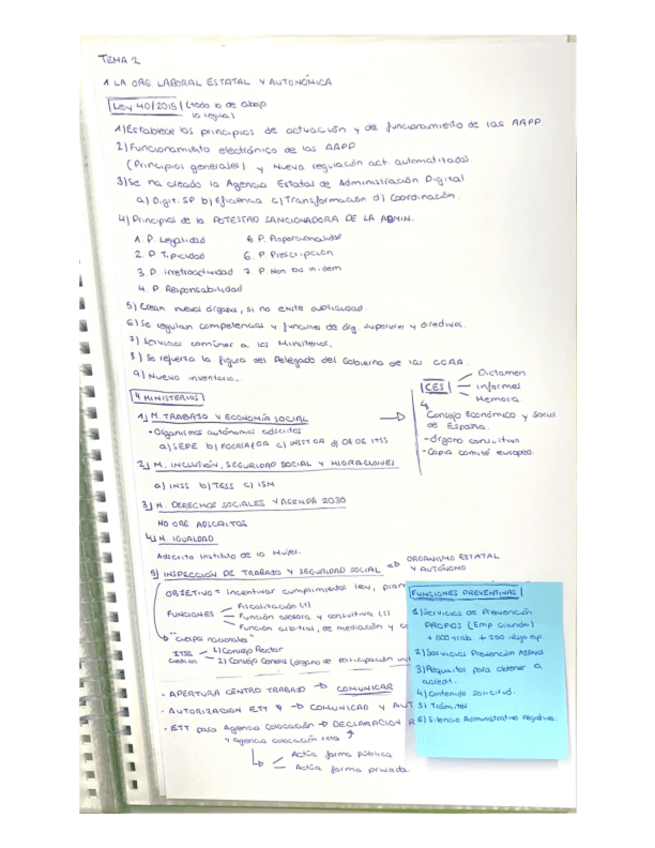 TEMA 2
1. LA ORG LABORAL ESTATAL Y AUTONÓMICA
Ley 40/2015 (todo lo de abajo
lo regula)
1) Establece los principios de actuación y de funcionamiento de las AAPP
2) Funcionamiento electrónico de las AAPP
(Principios generales) y Nueva regulación act. automatizadas.
3) Se ha creado la Agencia Estatal de Administración Digital
a) Digit. SP b) eficiencia c) Transformación d) Coordinación.
4) Principios de la POTESTAD SANCIONADORA DE LA ADMIN.
1. P. Legalidad 5. P. Proporcionalidad
2. P. Tipicidad 6. P. Prescripción
3. P. irretroactividad 7. P. Non bis in idem
4. P Responsabilidad
5) Crean nuevos órganos, si no existe duplicidad.
6) Se regulan competencias y funciones de órg. superiores y directivos.
7) Servicios comunes a los Ministerios.
8) Se refuerza la figura del Delegado del Gobierno de las CCAA.
9) Nuevo inventario...
4 MINISTERIOS
1) M. TRABAJO Y ECONOMÍA SOCIAL
• Organismos autónomos adscritos
a) SEPE b) FOGASA c) INSST OA d) OA DE ITSS
CES
Dictamen
Informes
Memoria
Consejo Económico y Social
de España.
- Órgano consultivo
- Copia comité europeo.
2) M. INCLUSIÓN, SEGURIDAD SOCIAL Y MIGRACIONES
a) INSS b) TGSS c) ISM
3) M. DERECHOS SOCIALES Y AGENDA 2030
NO ORG ADSCRITOS
4) M. IGUALDAD
Adscrito Instituto de la Mujer.
5) INSPECCIÓN DE TRABAJO Y SEGURIDAD SOCIAL → ORGANISMO ESTATAL
Y AUTÓNOMO
OBJETIVO = Incentivar cumplimientos
FUNCIONES
Fiscalización (1)
Función asesora y consultiva (2)
Función arbitral, de mediación y
"cuerpos nacionales"
ITSS
1) Consejo Rector
2) Consejo General (órgano de participación
• APERTURA CENTRO TRABAJO → COMUNICAR
• AUTORIZACIÓN ETT → COMUNICAR Y AUT
• ETT pasa Agencia Colocación → DECLARACIÓN R
y agencia colocación sola
Actúa forma pública
Actúa forma privada.
FUNCIONES PREVENTIVAS
1) Servicios de Prevención
PROPIOS (Emp Grandes)
+ 500 trab. + 250
2) Servicios Prevención AJENOS
3) Requisitos para obtener la
acredit.
4) Contenido Solicitud.
5) Trámites
6) Silencio Administrativo negativo.